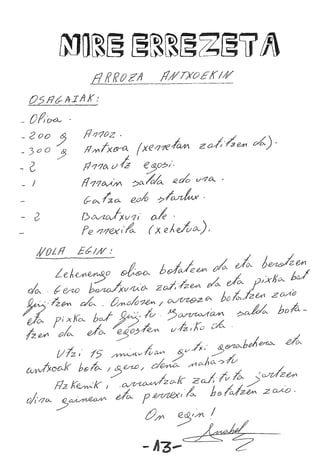 NIRE ERREZETA
ARROZA ANTXOEKIN
OSAGAIAK:
- Olioa.
- 200 g Arroz.
- 300 g Antxoa (xerretan zatitzen da).
- 2 Arrautz egosi.
- 1 Arrain salda edo ura.
- Gatza edo starlux.
- 2 Baratxuri ale.
- Perrexila (xehetua).
NOLA EGIN:
Lehenengo olioa botatzen da eta berotzen
da. Gero baratxuria zatitzen da eta pixka bat
frijitzen da. Ondoren, arroza botatzen zaio
eta pixka bat frijitu. Sarrarian salda bota-
tzen da eta egosten utziko da.
Utzi 15 minutuan gutxi gorabehera eta
antxoak bota, gero, dena nahastu
Azkenik, arrautzak zatituta jartzen
dira gainean eta perrexila botatzen zaio.
On egin!
Anabel
-13-